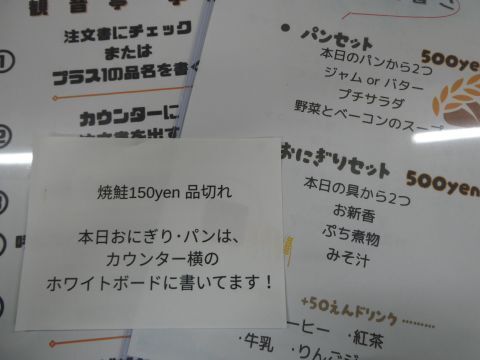 観音亭
①
注文書にチェック
または
プラス1の品名を書く
②
カウンターに
注文書を出す
焼鮭150yen 品切れ
本日おにぎり・パンは、
カウンター横の
ホワイトボードに書いてます！
パンセット 500yen
本日のパンから2つ
ジャム or バター
プチサラダ
野菜とベーコンのスープ
おにぎりセット 500yen
本日の具から2つ
お新香
ぷち煮物
みそ汁
+50えんドリンク
・紅茶
・牛乳